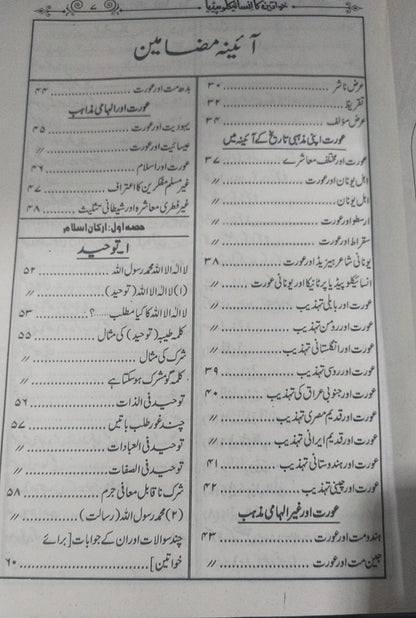 خواتین کا انسائیکلوپیڈیا
۷
آئینہ مضامین
عرض ناشر ........ ۳۰
تقریظ ........ ۳۲
عرض مؤلف ........ ۳۴
عورت اپنی مذہبی تاریخ کے آئینہ میں
عورت اور مختلف معاشرے ........ ۳۷
اہل یونان اور عورت ........ //
اہل یونان ........ //
ارسطو اور عورت ........ //
سقراط اور عورت ........ //
یونانی شاعر ہیزیڈ اور عورت ........ ۳۸
انسائیکلو پیڈیا برٹانیکا اور یونانی عورت ........ //
عورت اور بابلی تہذیب ........ //
عورت اور رومن تہذیب ........ //
عورت اور انگلستانی تہذیب ........ //
عورت اور روسی تہذیب ........ ۳۹
عورت اور جنوبی عراق کی تہذیب ........ ۴۰
عورت اور قدیم مصری تہذیب ........ //
عورت اور قدیم ایرانی تہذیب ........ //
عورت اور ہندوستانی تہذیب ........ ۴۱
عورت اور چینی تہذیب ........ ۴۲
عورت اور غیر الہامی مذہب
ہندومت اور عورت ........ ۴۳
جین مت اور عورت ........ //
بدھ مت اور عورت ........ ۴۴
عورت اور الہامی مذاہب
یہودیت اور عورت ........ ۴۵
عیسائیت اور عورت ........ //
عورت اور اسلام ........ ۴۶
غیر مسلم مفکرین کا اعتراف ........ ۴۷
غیر فطری معاشرہ اور شیطانی تثلیث ........ ۴۸
حصہ اول: ارکان اسلام
۱۔ توحید
لا الہ الا اللہ محمد رسول اللہ ........ ۵۲
(۱) لا الہ الا اللہ (توحید) ........ //
لا الہ الا اللہ کا کیا مطلب ......؟ ........ ۵۳
کلمہ طیبہ (توحید) کی مثال ........ ۵۵
شرک کی مثال ........ //
کلمہ گو مشرک ہو سکتا ہے ........ //
توحید فی الذات ........ ۵۶
چند غور طلب باتیں ........ ۵۷
توحید فی العبادات ........ //
توحید فی الصفات ........ //
شرک نا قابل معافی جرم ........ ۵۸
(۲) محمد رسول اللہ (رسالت) ........ //
چند سوالات اور ان کے جوابات [برائے
خواتین] ........ ۶۰